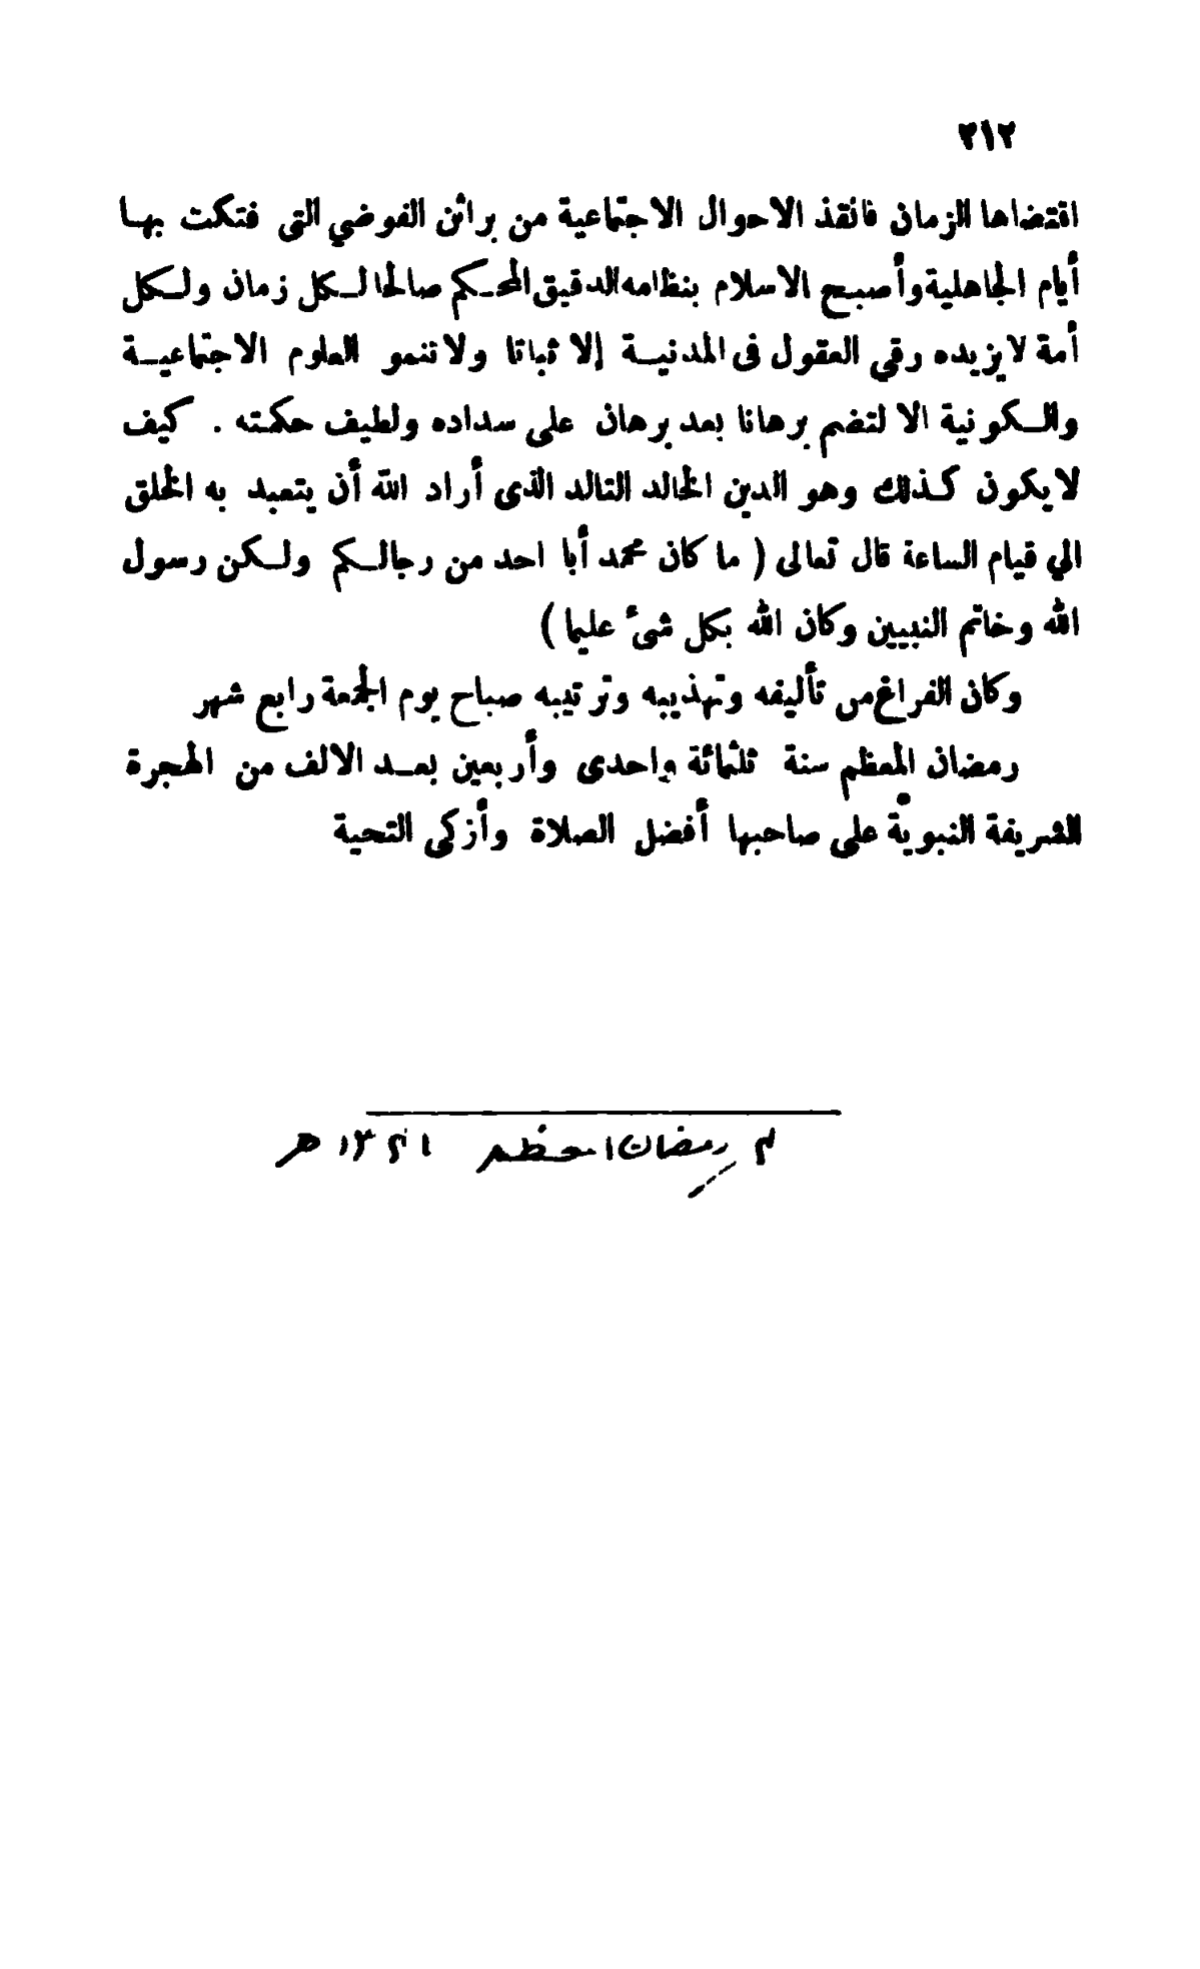 ٣١٢
اقتضاها الزمان فانقذ الاحوال الاجتماعية من براثن الفوضي التى فتكت بها
أيام الجاهلية وأصبح الاسلام بنظامه الدقيق المحكم صالحا لكل زمان ولكل
أمة لا يزيده رقي العقول فى المدنية إلا ثباتا ولا تنمو العلوم الاجتماعية
والكونية الا لتضم برهانا بعد برهان على سداده ولطيف حكمته . كيف
لا يكون كذلك وهو الدين الخالد التالد الذى أراد الله أن يتعبد به الخلق
الي قيام الساعة قال تعالى ( ما كان محمد أبا احد من رجالكم ولكن رسول
الله وخاتم النبيين وكان الله بكل شىء عليما )
وكان الفراغ من تأليفه وتهذيبه وترتيبه صباح يوم الجمعة رابع شهر
رمضان المعظم سنة ثلثمائة وإحدى وأربعين بعد الالف من الهجرة
الشريفة النبوية على صاحبها أفضل الصلاة وأزكى التحية
٤ رمضان المعظم ١٣٤١ هـ